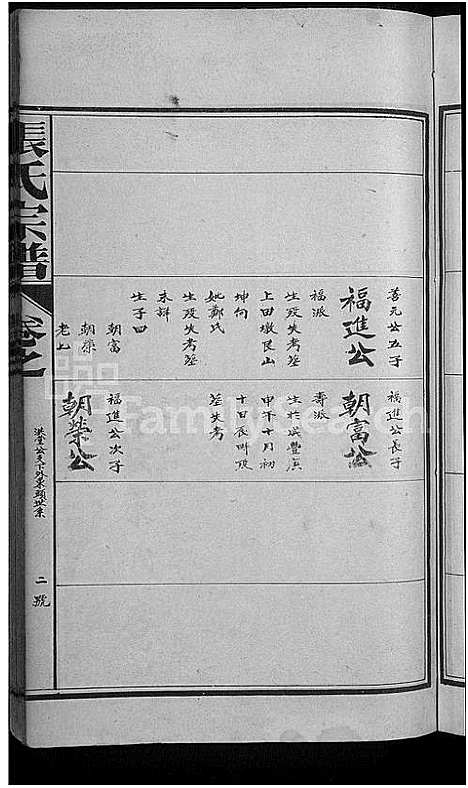 善元公五子
福進公
福派
生歿失考葬
上田墩艮山
坤向
妣鄭氏
生歿失考葬
未詳
生子四
朝富
朝榮
老七
福進公長子
朝富公
壽派
生於咸豐庚
申年十月初
十日辰時歿
葬失考
福進公次子
朝榮公
張氏宗譜
卷之
洪堂公天下外東頭世系
二號
FamilySearch